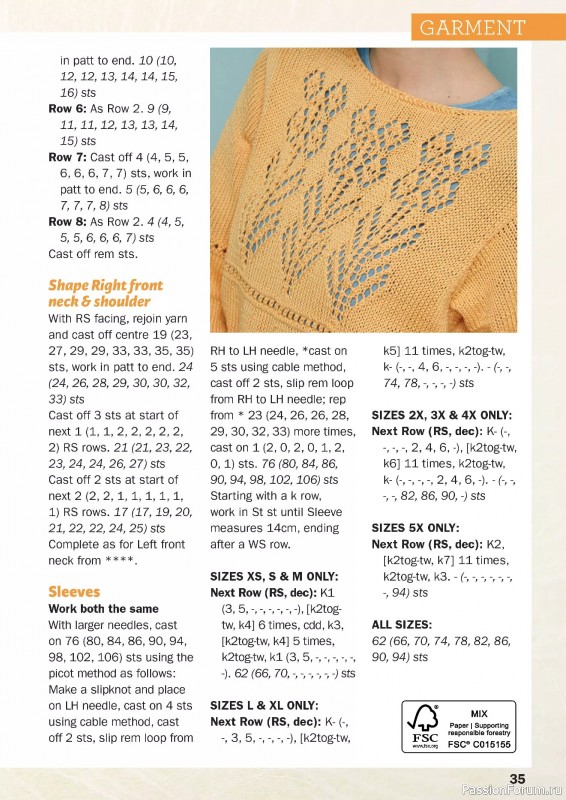 GARMENT
in patt to end. 10 (10,
12, 12, 13, 14, 14, 15,
16) sts
Row 6: As Row 2. 9 (9,
11, 11, 12, 13, 13, 14,
15) sts
Row 7: Cast off 4 (4, 5, 5,
6, 6, 6, 7, 7) sts, work in
patt to end. 5 (5, 6, 6, 6,
7, 7, 7, 8) sts
Row 8: As Row 2. 4 (4, 5,
5, 5, 6, 6, 6, 7) sts
Cast off rem sts.
Shape Right front
neck & shoulder
With RS facing, rejoin yarn
and cast off centre 19 (23,
27, 29, 29, 33, 33, 35, 35)
sts, work in patt to end. 24
(24, 26, 28, 29, 30, 30, 32,
33) sts
Cast off 3 sts at start of
next 1 (1, 1, 2, 2, 2, 2, 2,
2) RS rows. 21 (21, 23, 22,
23, 24, 24, 26, 27) sts
Cast off 2 sts at start of
next 2 (2, 2, 1, 1, 1, 1, 1,
1) RS rows. 17 (17, 19, 20,
21, 22, 22, 24, 25) sts
Complete as for Left front
neck from ****.
Sleeves
Work both the same
With larger needles, cast
on 76 (80, 84, 86, 90, 94,
98, 102, 106) sts using the
picot method as follows:
Make a slipknot and place
on LH needle, cast on 4 sts
using cable method, cast
off 2 sts, slip rem loop from
RH to LH needle, *cast on
5 sts using cable method,
cast off 2 sts, slip rem loop
from RH to LH needle; rep
from * 23 (24, 26, 26, 28,
29, 30, 32, 33) more times,
cast on 1 (2, 0, 2, 0, 1, 2,
0, 1) sts. 76 (80, 84, 86,
90, 94, 98, 102, 106) sts
Starting with a k row,
work in St st until Sleeve
measures 14cm, ending
after a WS row.
SIZES XS, S & M ONLY:
Next Row (RS, dec): K1
(3, 5, -, -, -, -, -, -), [k2tog-
tw, k4] 6 times, cdd, k3,
[k2tog-tw, k4] 5 times,
k2tog-tw, k1 (3, 5, -, -, -, -, -,
-). 62 (66, 70, -, -, -, -, -, -) sts
SIZES L & XL ONLY:
Next Row (RS, dec): K- (-,
-, 3, 5, -, -, -, -), [k2tog-tw,
k5] 11 times, k2tog-tw,
k- (-, -, 4, 6, -, -, -, -). - (-, -,
74, 78, -, -, -, -) sts
SIZES 2X, 3X & 4X ONLY:
Next Row (RS, dec): K- (-,
-, -, -, 2, 4, 6, -), [k2tog-tw,
k6] 11 times, k2tog-tw,
k- (-, -, -, -, 2, 4, 6, -). - (-, -,
-, -, 82, 86, 90, -) sts
SIZES 5X ONLY:
Next Row (RS, dec): K2,
[k2tog-tw, k7] 11 times,
k2tog-tw, k3. - (-, -, -, -, -, -,
-, 94) sts
ALL SIZES:
62 (66, 70, 74, 78, 82, 86,
90, 94) sts
FSC
www.fsc.org
MIX
Paper | Supporting
responsible forestry
FSC® C015155
35
PassionForum.ru